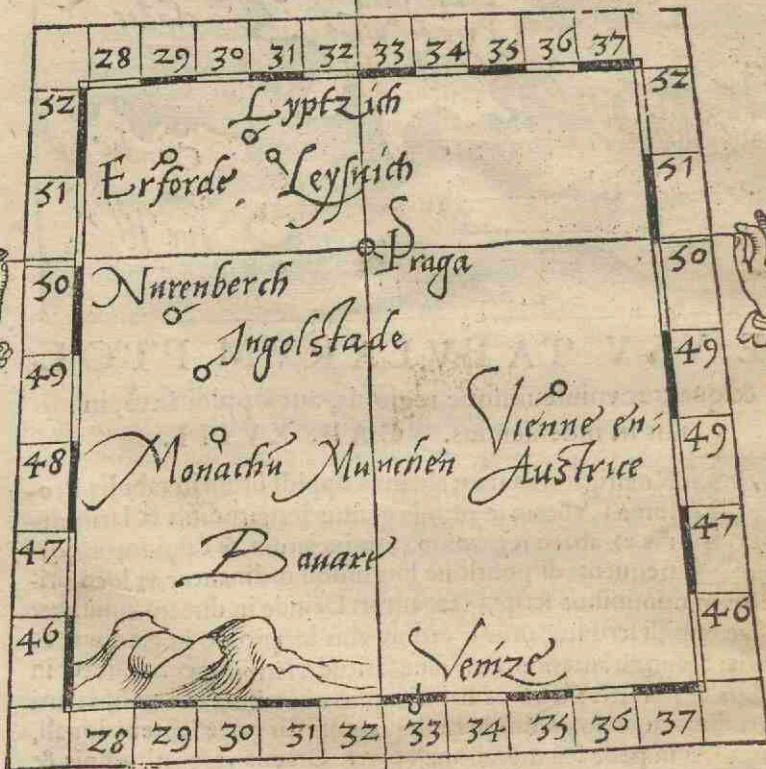 28 29 30 31 32 33 34 35 36 37
52 52
Lyptzich
Erforde Leysnich
51 51
Praga
50 50
Nurenberch
Ingolstade
49 49
Vienne en:
Monachii Munchen Austrice
48 49
47 47
Bavare
46 46
Venize
28 29 30 31 32 33 34 35 36 37